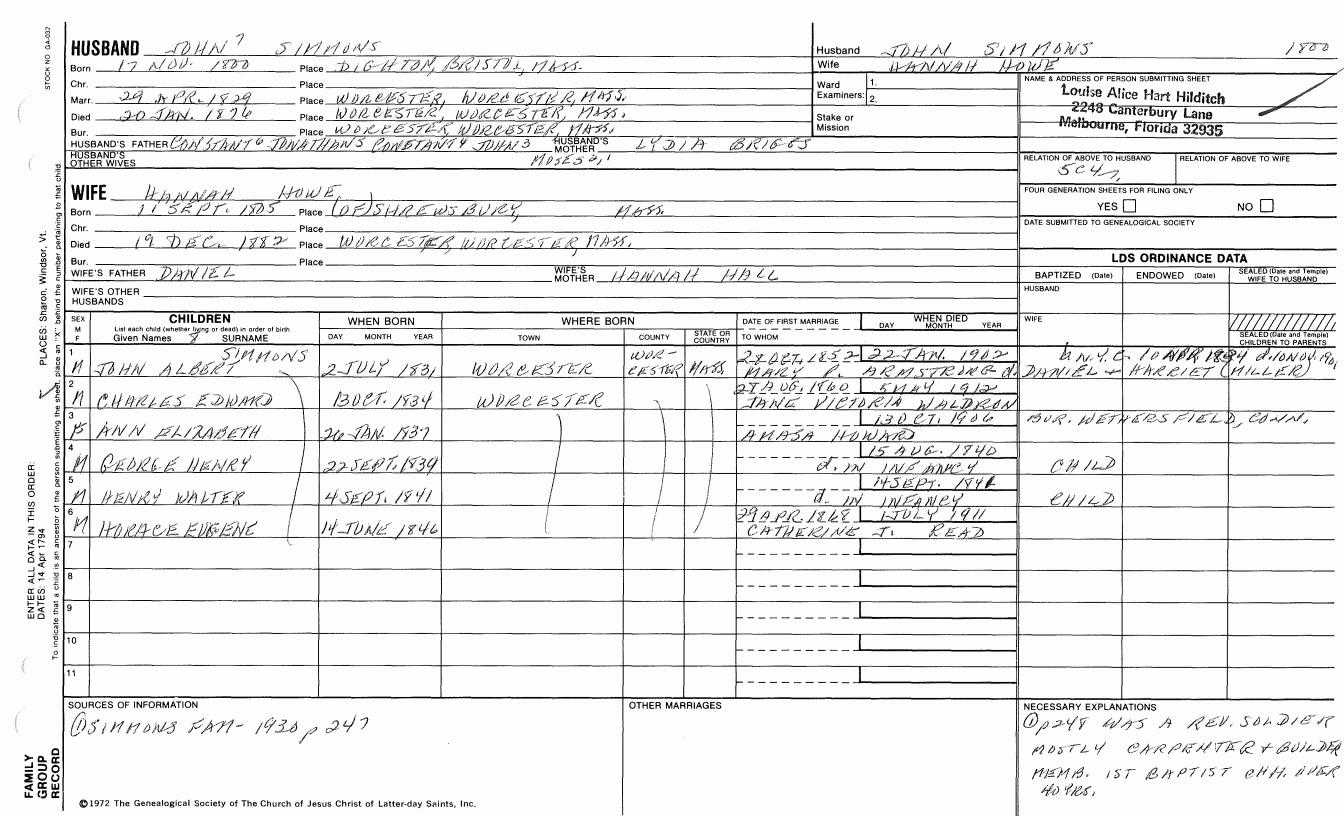 STOCK NO GA-032
HUSBAND JOHN 7 SIMMONS
Born 17 NOV. 1800 Place DIGHTON, BRISTOL, MASS.
Chr. Place
Marr. 29 APR. 1829 Place WORCESTER, WORCESTER, MASS.
Died 20 JAN. 1876 Place WORCESTER, WORCESTER, MASS.
Bur. Place WORCESTER, WORCESTER, MASS.
HUSBAND'S FATHER CONSTANT 6 JONATHAN 5 CONSTANT 4 JOHN 3 HUSBAND'S MOTHER LYDIA BRIGGS
HUSBAND'S OTHER WIVES MOSES 2, 1
Husband JOHN SIMMONS 1800
Wife HANNAH HOWE
Ward Examiners: 1. 2.
Stake or Mission
NAME & ADDRESS OF PERSON SUBMITTING SHEET
Louise Alice Hart Hilditch
2248 Canterbury Lane
Melbourne, Florida 32935
RELATION OF ABOVE TO HUSBAND RELATION OF ABOVE TO WIFE
5C4r
FOUR GENERATION SHEETS FOR FILING ONLY
YES NO
DATE SUBMITTED TO GENEALOGICAL SOCIETY
WIFE HANNAH HOWE
Born 11 SEPT. 1805 Place (OF) SHREWSBURY, MASS.
Chr. Place
Died 19 DEC. 1882 Place WORCESTER, WORCESTER, MASS.
Bur. Place
WIFE'S FATHER DANIEL WIFE'S MOTHER HANNAH HALL
WIFE'S OTHER HUSBANDS
LDS ORDINANCE DATA
BAPTIZED (Date) ENDOWED (Date) SEALED (Date and Temple) WIFE TO HUSBAND
HUSBAND
WIFE
SEALED (Date and Temple) CHILDREN TO PARENTS
SEX M F CHILDREN WHEN BORN WHERE BORN DATE OF FIRST MARRIAGE WHEN DIED
List each child (whether living or dead) in order of birth
Given Names 8 SURNAME DAY MONTH YEAR TOWN COUNTY STATE OR COUNTRY TO WHOM DAY MONTH YEAR
1 SIMMONS WOR- 28 OCT. 1852 22 JAN. 1902 b. N.Y.C. 10 APR 1834 d. 10 NOV. 190
M JOHN ALBERT 2 JULY 1831 WORCESTER CESTER MASS MARY P. ARMSTRONG d. DANIEL + HARRIET (MILLER)
2 27 AUG. 1860 5 MAY 1912
M CHARLES EDWARD 13 OCT. 1834 WORCESTER JANE VICTORIA WALDRON
3 13 OCT. 1906 BUR. WETHERSFIELD, CONN.
F ANN ELIZABETH 26 JAN. 1837 AMASA HOWARD
4 15 AUG. 1840
M GEORGE HENRY 22 SEPT. 1839 d. IN INFANCY CHILD
5 14 SEPT. 1841
M HENRY WALTER 4 SEPT. 1841 d. IN INFANCY CHILD
6 29 APR. 1868 1 JULY 1911
M HORACE EUGENE 14 JUNE 1846 CATHERINE J. READ
7
8
9
10
11
SOURCES OF INFORMATION OTHER MARRIAGES NECESSARY EXPLANATIONS
① SIMMONS FAM- 1930 p 247
① p248 WAS A REV. SOLDIER
MOSTLY CARPENTER + BUILDER
MEMB. 1ST BAPTIST CHH. OVER
40 YRS.
©1972 The Genealogical Society of The Church of Jesus Christ of Latter-day Saints, Inc.
FAMILY GROUP RECORD
ENTER ALL DATA IN THIS ORDER: PLACES: Sharon, Windsor, Vt.
DATES: 14 Apr 1794
To indicate that a child is an ancestor of the person submitting the sheet, place an "X" behind the number pertaining to that child.